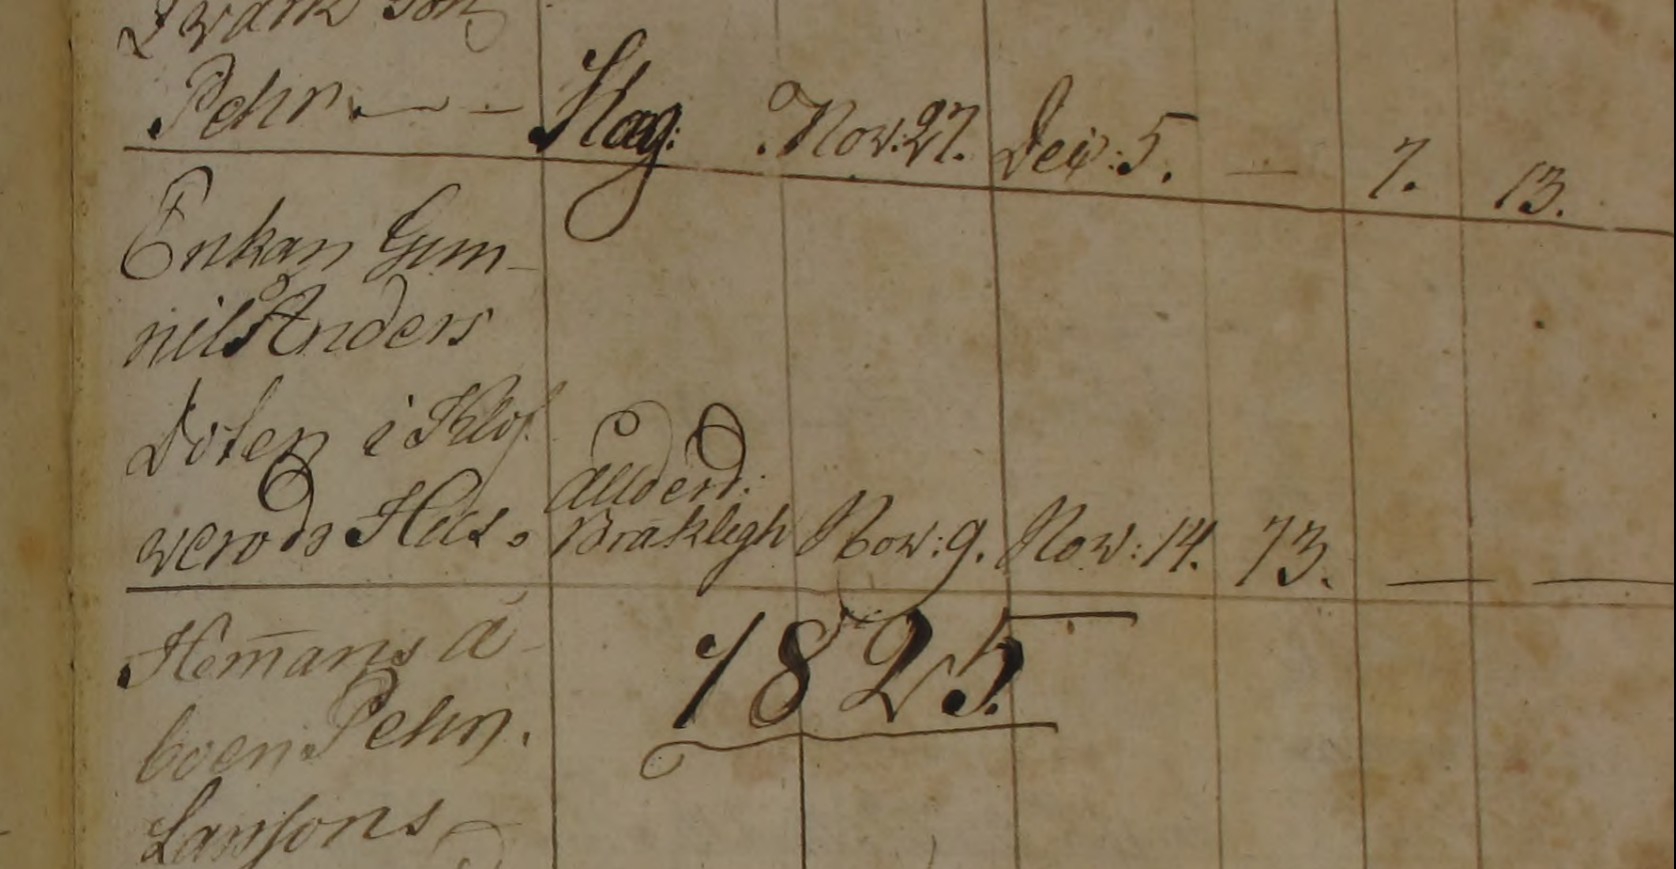 Son
Pehr. — - Slag: Nov: 27. Dec: 5. — 7. 13.
Enkan Gun-
nil Anders
Doter i Klöf
veröds Hus. ålderd:
Bräkligh Nov: 9. Nov: 14. 73. — —
1825.
Hem̄ans å-
boen Pehr.
Larssons